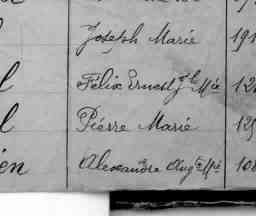 Joseph Marie 191
l Félix Ernest J M ie 12
l Piérre Marie 129
ien Alexandre Aug te M ie 108